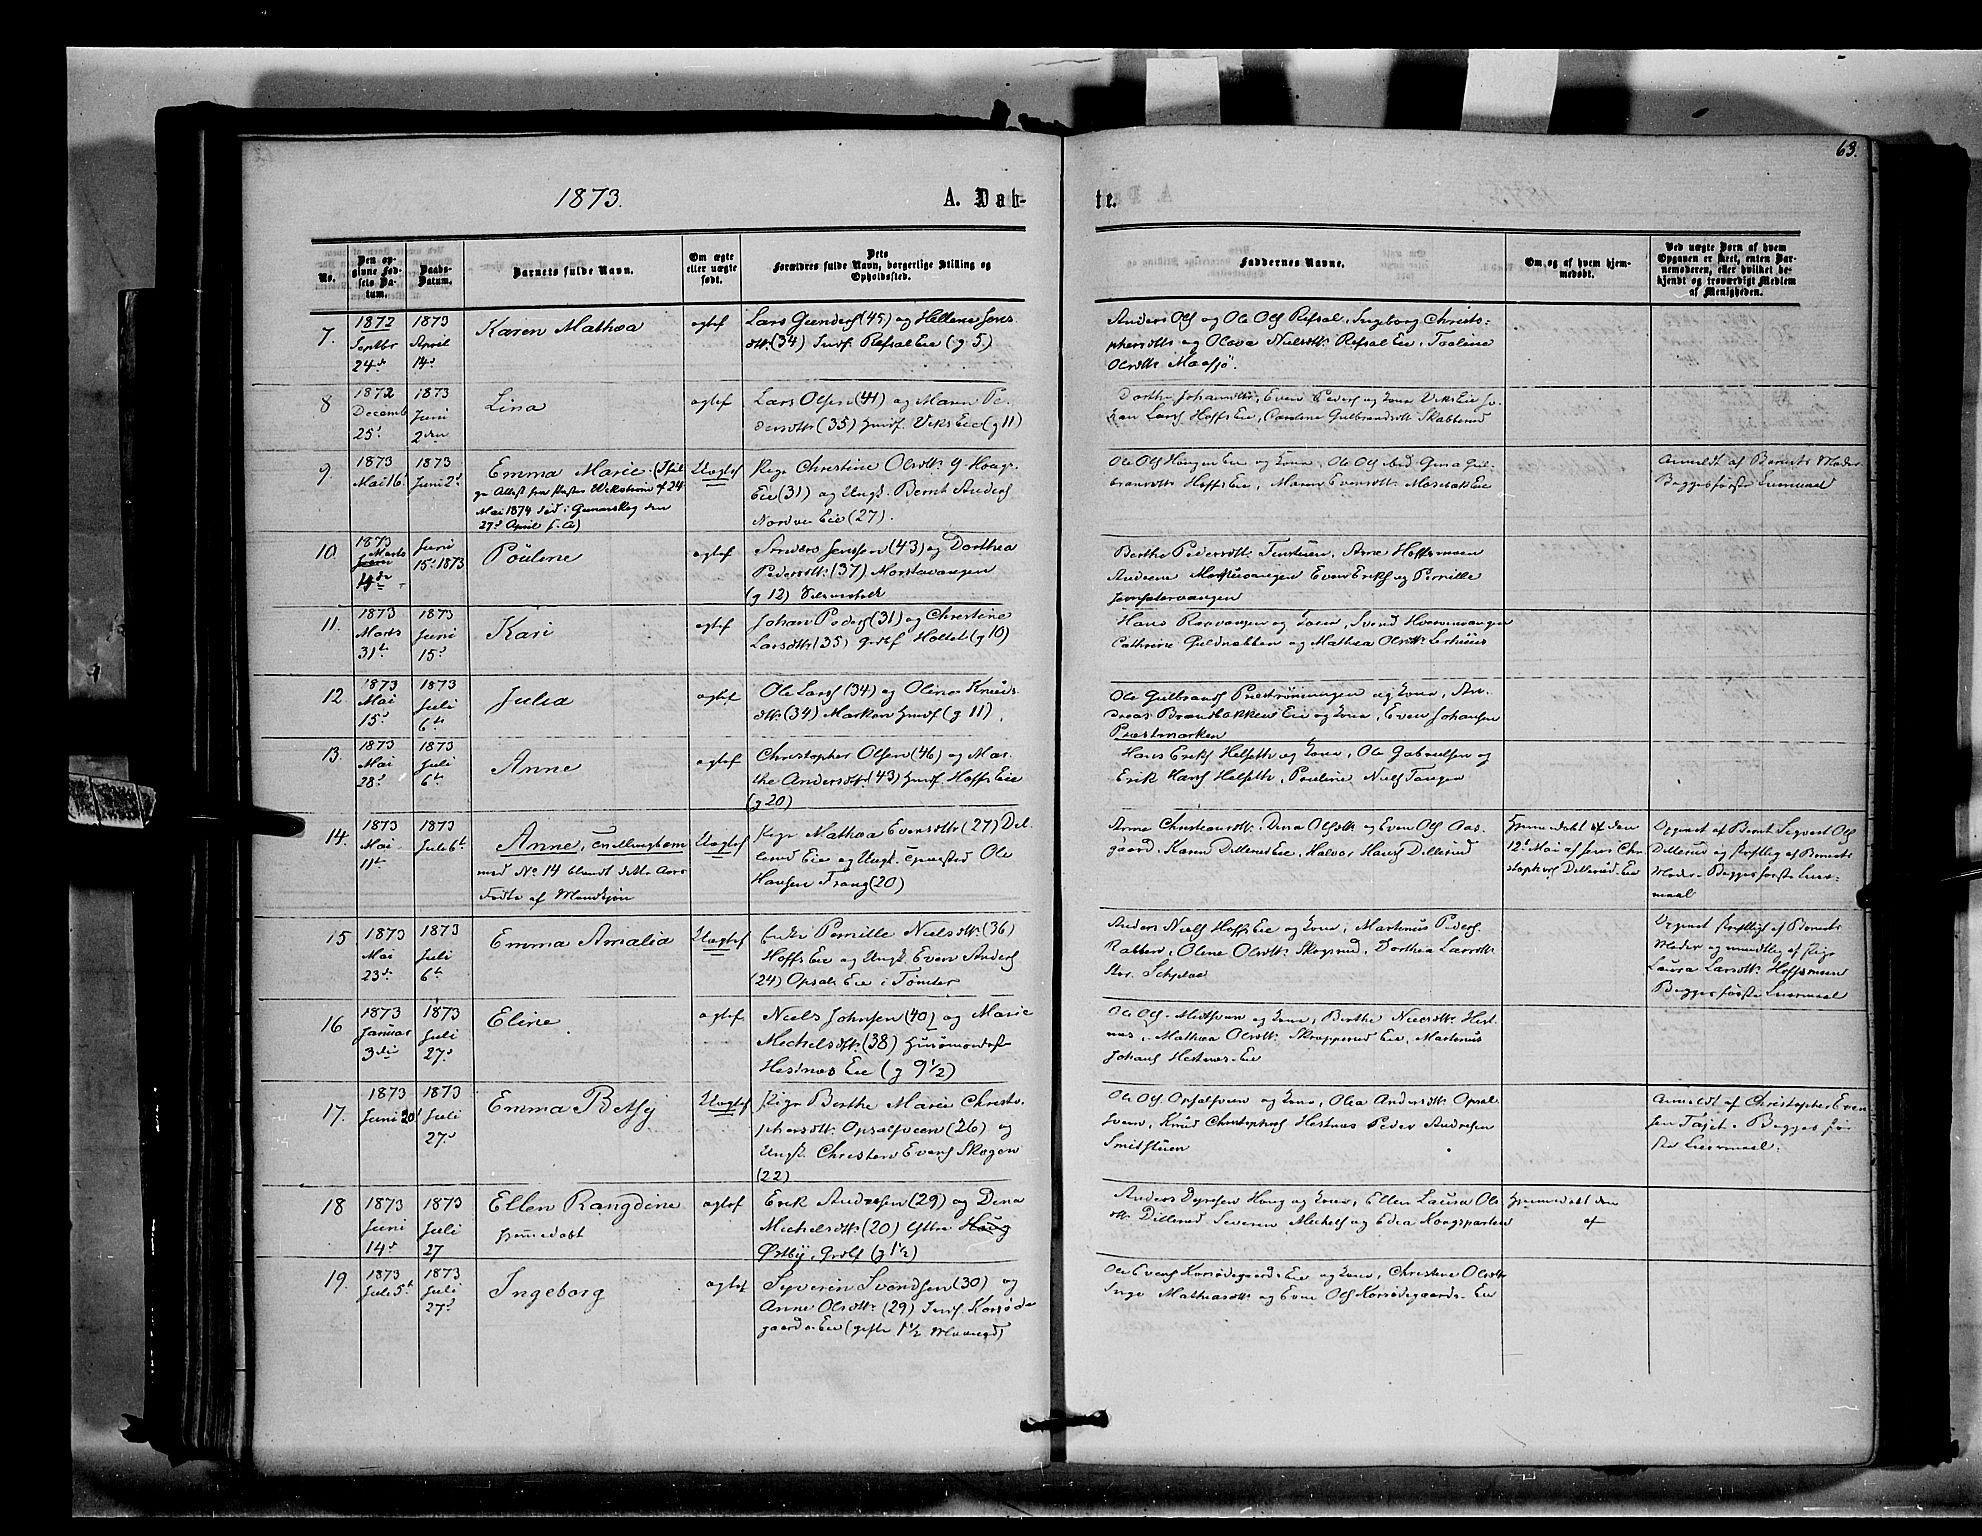 63.
1873.
A. Døb-
te.
No.
Den op-
givne Fød-
sels Da-
tum.
Daabs-
Datum.
Barnets fulde Navn.
Om ægte
eller uægte
født.
Dets
Forældres fulde Navn, borgerlige Stilling og
Opholdssted.
Faddernes Navne.
Om og af hvem hjem-
medøbt.
Ved uægte Børn af hvem
Opgaven er skeet, enten Bar-
nemoderen, eller hvilket be-
kjendt og troværdigt Medlem
af Menigheden.
7.
1872
Septbr
24de
1873
April
14de
Karen Mathea
ægtef
Lars Gunders (45) og Hellene Jens-
dtr. (34) Indf. Refsal Eie (g 5)
Anders Ols og Ole Ols Refsal, Ingeborg Christo-
phersdtr og Olava Nielsdtr. Refsal Eie,
Olsdtr Maasjø.
8
1872
Decemb
25
1873
Juni
2den
Lina
ægtef
Lars Olsen (41) og Maren Pe-
dersdtr (35) Husf. Viks Eie (g 11)
Dorthe Johansdtr, Even Peders og Kone Viks Eie Jo-
han Lars Hoffs Eie, Caroline Gulbrandsdtr Skabberud
9
1873
Mai 16
1873
Juni 2
Emma Marie. (Iføl-
ge Attest fra Pastor Wekstrøm af 24
Mai 1874 død i Gunarskog den
27de April s. A)
Uægtef
Pige Christine Olsdtr. Haugs-
Eie (31) og Ungk. Bernt Anders
Nordre Eie (27).
Ole Ols Haugen Eie og Kone, Ole Ols ibid. Gina Gul-
brandsdtr Hoffs Eie, Maren Evensdtr Mosebæk Eie
Anmeldt af Barnets Moder
Begges første Leiermaal
10.
1873
Marts
4de
Juni
15. 1873
Pouline
ægtef
Anders Jensen (43) og Dorthea
Pedersdtr. (37) Morstavangen
(g 12)
Berthe Pedersdtr. Arne Hoffsmoen
Andrene Even Eriks og Pernille
11.
1873
Marts
31te
1873
Juni
15.
Kari
ægtef
Johan Peders (31) og Christine
Larsdtr (35) Grdf Holtet (g 10)
Hans og Kone, Svend
Cathrine Guldnabben og Mathea Olsdtr.
12
1873
Mai
15.
1873
Juli
6te
Julia
ægtef
Ole Lars (34) og Oline Knuds-
dtr. (34) Marken Husf (g 11).
Ole Gulbrands og Kone, An-
dreas Brandbakken Eie og Kone, Even Johansen
Præstmarken
13.
1873
Mai
28.
1873
Juli
6te
Anne
ægtef
Christopher Olsen (46) og Mar-
the Andersdtr. (43) Husf Hoffs Eie
(g 20)
Hans Eriks Helseth og Kone, Ole Gabrielsen og
Erik Hans Helseth, Pouline Niels Tangen
14.
1873
Mai
11te
1873
Juli 6te
Anne, Tvillingbarn
med No 14 blandt dette Aars
Fødte af Mandkjøn
Uægtef
Pige Mathea Evensdtr. (27) Dil-
lerud Eie og Ungk. Ole
Hansen Trang (20)
Anne Christiansdtr. Dina Olsdtr og Even Ols Aas-
gaard, Karen Dillerud Eie, Halvor Hans Dillerud
Hjemmedøbt af den
12te Mai af Jens Chri-
stophers Dillerud-Eie
Opgivet af Bernt Sigvart Ols
Dillerud og skriftlig af Barnets
Moder. Begges første Leier-
maal
15
1873
Mai
23de
1873
Juli
6te
Emma Amalia
Uægtef
Enke Pernille Nielsdtr. (36)
Hoffs Eie og Ungk. Even Anders
(24) Opsal Eie i Tomter
Anders Niels Hoffs Eie og Kone, Martinus Peders
Rabben, Olene Olsdtr. Skogsrud, Dorthea Larsdtr
Opgivet skriftligt af Barnets
Moder og mundtlig af Pige
Laura Larsdtr. Hoffsmoen
Begges første Leiermaal
16
1873
Januar
3die
1873
Juli
27.
Eline
ægtef.
Niels Johnsen (40) og Marie
Michelsdtr. (38) Husmandsf
Hestnæs Eie (g 9½)
Ole Ols og Kone, Berthe Nielsdtr. Hest-
næs, Mathea Olsdtr. Skrapperud Eie, Martinus
Johans Hestnæs-Eie
17.
1873
Juni 20
1873
Juli
27.
Emma Betsy
Uægtef
Pige Berthe Marie Christo-
phersdtr. Opsalsveen (26) og
Ungk. Christen Evens Skogen
(22)
Ole Ols Opsalsveen og Kone, Olea Andersdtr. Opsal-
sveen, Knud Christophers Hestnæs Peder Andersen
Smitstuen
Anmeldt af Christopher Even-
sen Taset. Begges før-
ste Leiermaal.
18
1873
Juni
14de
1873
Juli
27
Ellen Rangdine
hjemmedøbt
ægtef
Erik Andersen (29) og Dina
Michelsdtr. (20) Yttre Haug
Østby, Grdf (g 1½)
Anders Haug og Kone, Ellen Laura Ols-
dtr. Dillerud Severin Michels og Edea Haagsparten
Hjemmedøbt den
af
19.
1873
Juli 5te
1873
Juli
27.
Ingeborg
ægtef
Syverin Svendsen (30) og
Anne Olsdtr. (29) Indf. Korsøde-
gaards Eie (gifte 1½ Maaned)
Ole Evens Korsødegaards Eie og Kone, Christine Olsdtr
Inga Mathiasdtr og Even Ols Korsødegaards-Eie